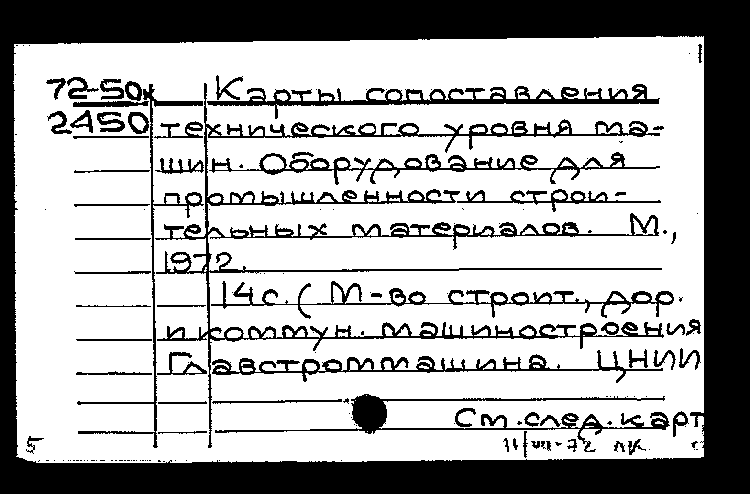 72-50к Карты сопоставления
2450 технического уровня ма-
шин. Оборудование для
промышленности строи-
тельных материалов. М.,
1972.
14с. (М-во строит., дор.
и коммун. машиностроения
Главстроммашина. ЦНИИ
См. след. карт
5 11/VIII-72 лк